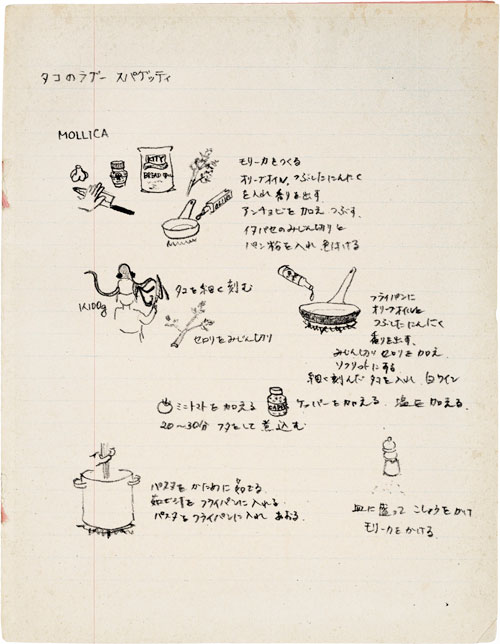 タコのラグー スパゲッティ
MOLLICA
KITY
BREAD
モリーカをつくる
オリーブオイル、つぶしたにんにく
を入れ香りを出す
アンチョビを加え つぶす。
イタパセのみじん切りと
パン粉を入れ 色付ける
1人100g
タコを細く刻む
セロリをみじん切り
フライパンに
オリーブオイルと
つぶしたにんにく
香りを出す、
みじん切り セロリを加え、
ソフリットにする
細く刻んだ タコを入れ、白ワイン
ミニトマトを加える
CAPE
ケッパーを加える、塩を加える、
20〜30分 フタをして 煮込む
パスタを かために 茹でる
茹で汁を フライパンに入れる
パスタを フライパンに入れ あおる、
皿に盛って こしょうをかけ
モリーカをかける、